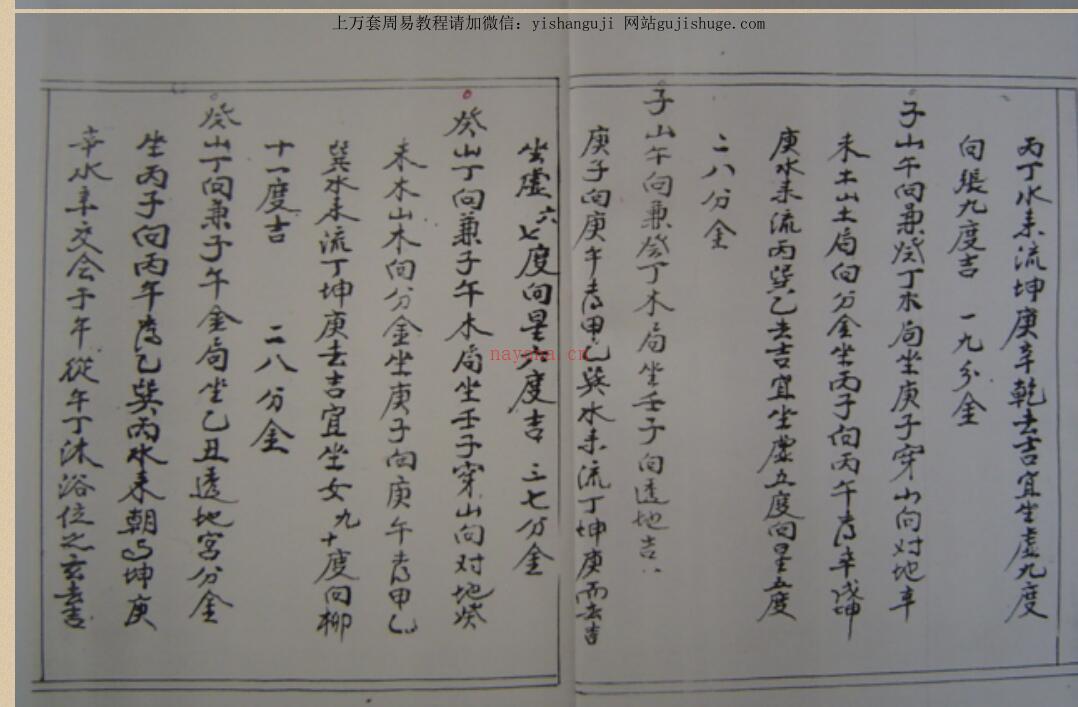 上万套周易教程请加微信：yishanguji 网站gujishuge.com
丙丁水来流坤庚辛乾去吉宜坐虚九度
向張九度吉 一九分金
子山午向兼癸丁水局坐庚子穿山向对地辛
未土山土局向分金坐丙子向丙午考辛戌坤
庚水来流丙巽乙去吉宜坐虚五度向星五度
二八分金
子山午向兼癸丁木局坐壬子向透地吉
庚子向庚午考甲乙巽水来流丁坤庚而去吉
坐虚六七度向星六度吉 三七分金
癸山丁向兼子午木局坐壬子穿山向对地癸
未木山木向分金坐庚子向庚午考甲乙
巽水来流丁坤庚去吉宜坐女九十度向柳
十一度吉 二八分金
癸山丁向兼子午金局坐乙丑透地宫分金
坐丙子向丙午考乙巽丙水来朝坤庚
辛水来交会于午從午丁沐浴位之玄去吉
nayona.cn